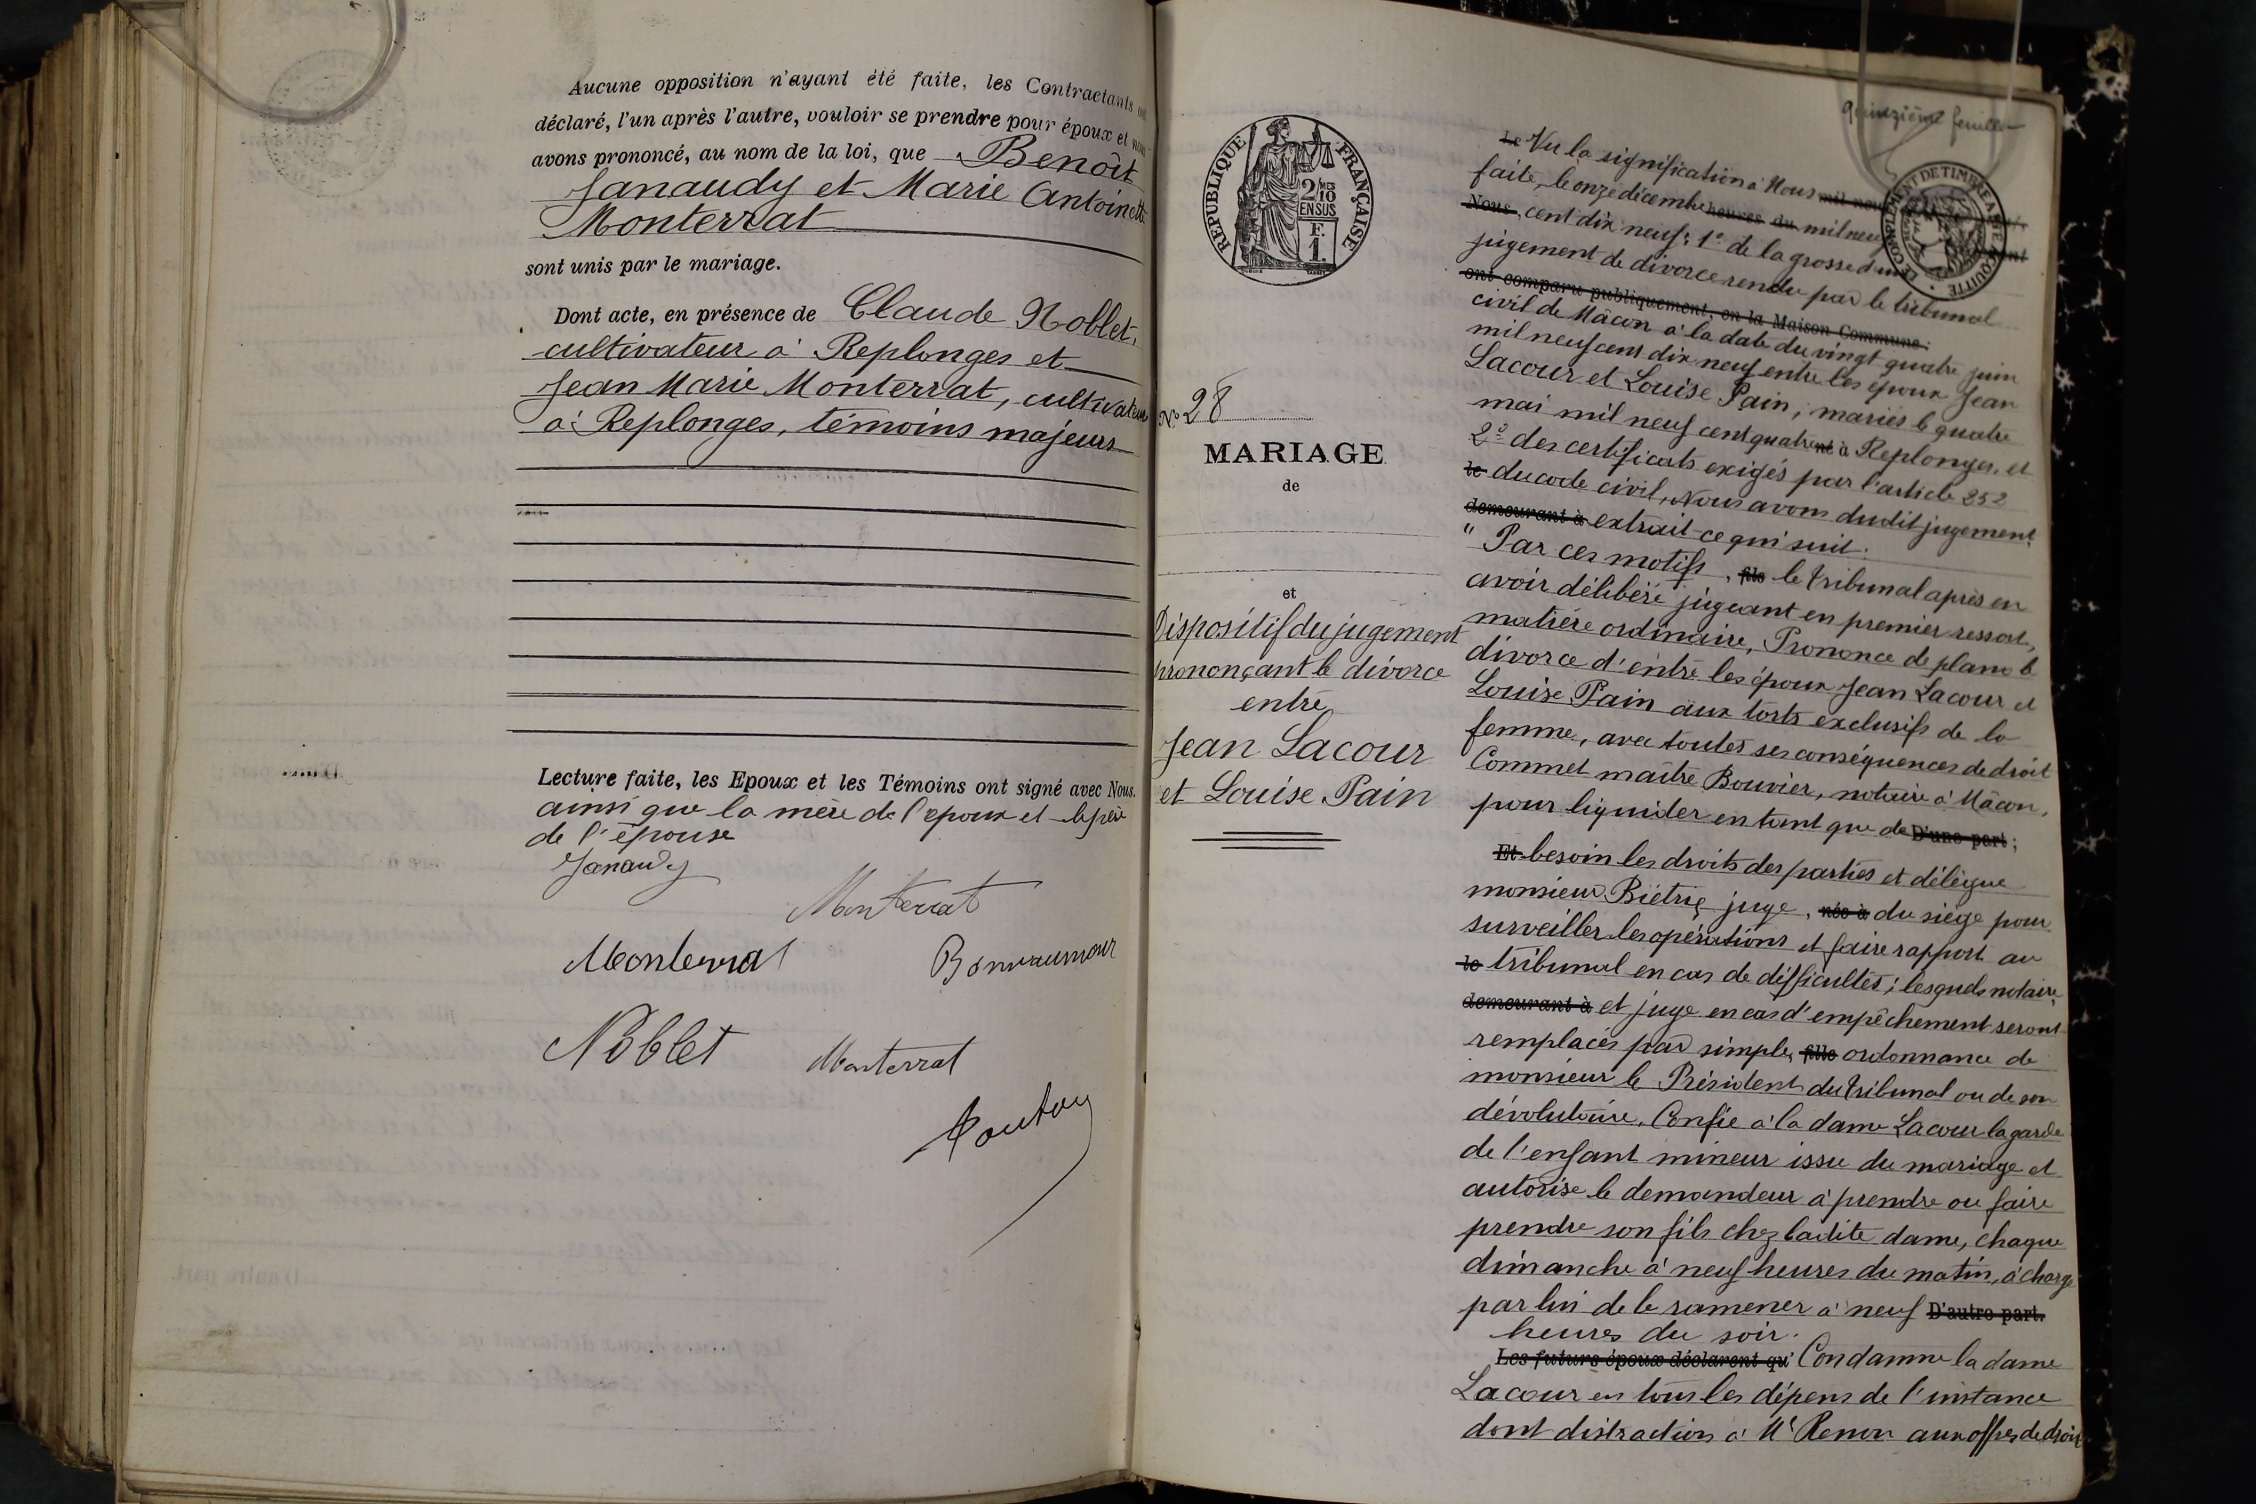 Aucune opposition n'ayant été faite, les Contractants
déclaré, l'un après l'autre, vouloir se prendre pour époux et
avons prononcé, au nom de la loi, que Benoît
Janaudy et Marie Antoinette
Monterrat
sont unis par le mariage.
Dont acte, en présence de Claude Noblet,
cultivateur à Replonges et
Jean Marie Monterrat, cultivateur
à Replonges, témoins majeurs
Lecture faite, les Epoux et les Témoins ont signé avec Nous.
ainsi que la mère de l'époux et le père
de l'épouse
Janaudy
Monterrat
Monterrat
Noblet
Monterrat
REPUBLIQUE FRANÇAISE
2/10 EN SUS
F. 1.
N° 28
MARIAGE
de
et
Dispositif du jugement
prononçant le divorce
entre
Jean Lacour
et Louise Pain
quinzième feuille
Le Vu la signification à Nous
faite, le onze décembre heures du mil neuf
Nous, cent dix neuf: 1° de la grosse d'un
jugement de divorce rendu par le tribunal
ont comparu publiquement, en la Maison Commune:
civil de Mâcon à la date du vingt quatre juin
mil neuf cent dix neuf entre les époux Jean
Lacour et Louise Pain, mariés le quatre
mai mil neuf cent quatre né à Replonges, et
2° des certificats exigés par l'article 252
le du code civil, Nous avons dudit jugement
demeurant à extrait ce qui suit.
" Par ces motifs, fils le tribunal après en
avoir délibéré jugeant en premier ressort,
matière ordinaire, Prononce de plano le
divorce d'entre les époux Jean Lacour et
Louise Pain aux torts exclusifs de la
femme, avec toutes ses conséquences de droit
Commet maître Bouvier, notaire à Mâcon,
pour liquider en tant que de D'une part;
Et besoin les droits des parties et délègue
monsieur Biétrie juge, née à du siège pour
surveiller les opérations et faire rapport au
le tribunal en cas de difficultés; lesquels notaire
demeurant à et juge en cas d'empêchement seront
remplacés par simple, fille ordonnance de
monsieur le Président du tribunal ou de son
dévolutaire. Confie à la dame Lacour la garde
de l'enfant mineur issu du mariage et
autorise le demandeur à prendre ou faire
prendre son fils chez ladite dame, chaque
dimanche à neuf heures du matin, à charge
par lui de le ramener à neuf D'autre part.
heures du soir.
Les futurs époux déclarent qu' Condamne la dame
Lacour en tous les dépens de l'instance
dont distraction à Me Renon aux offres de droit